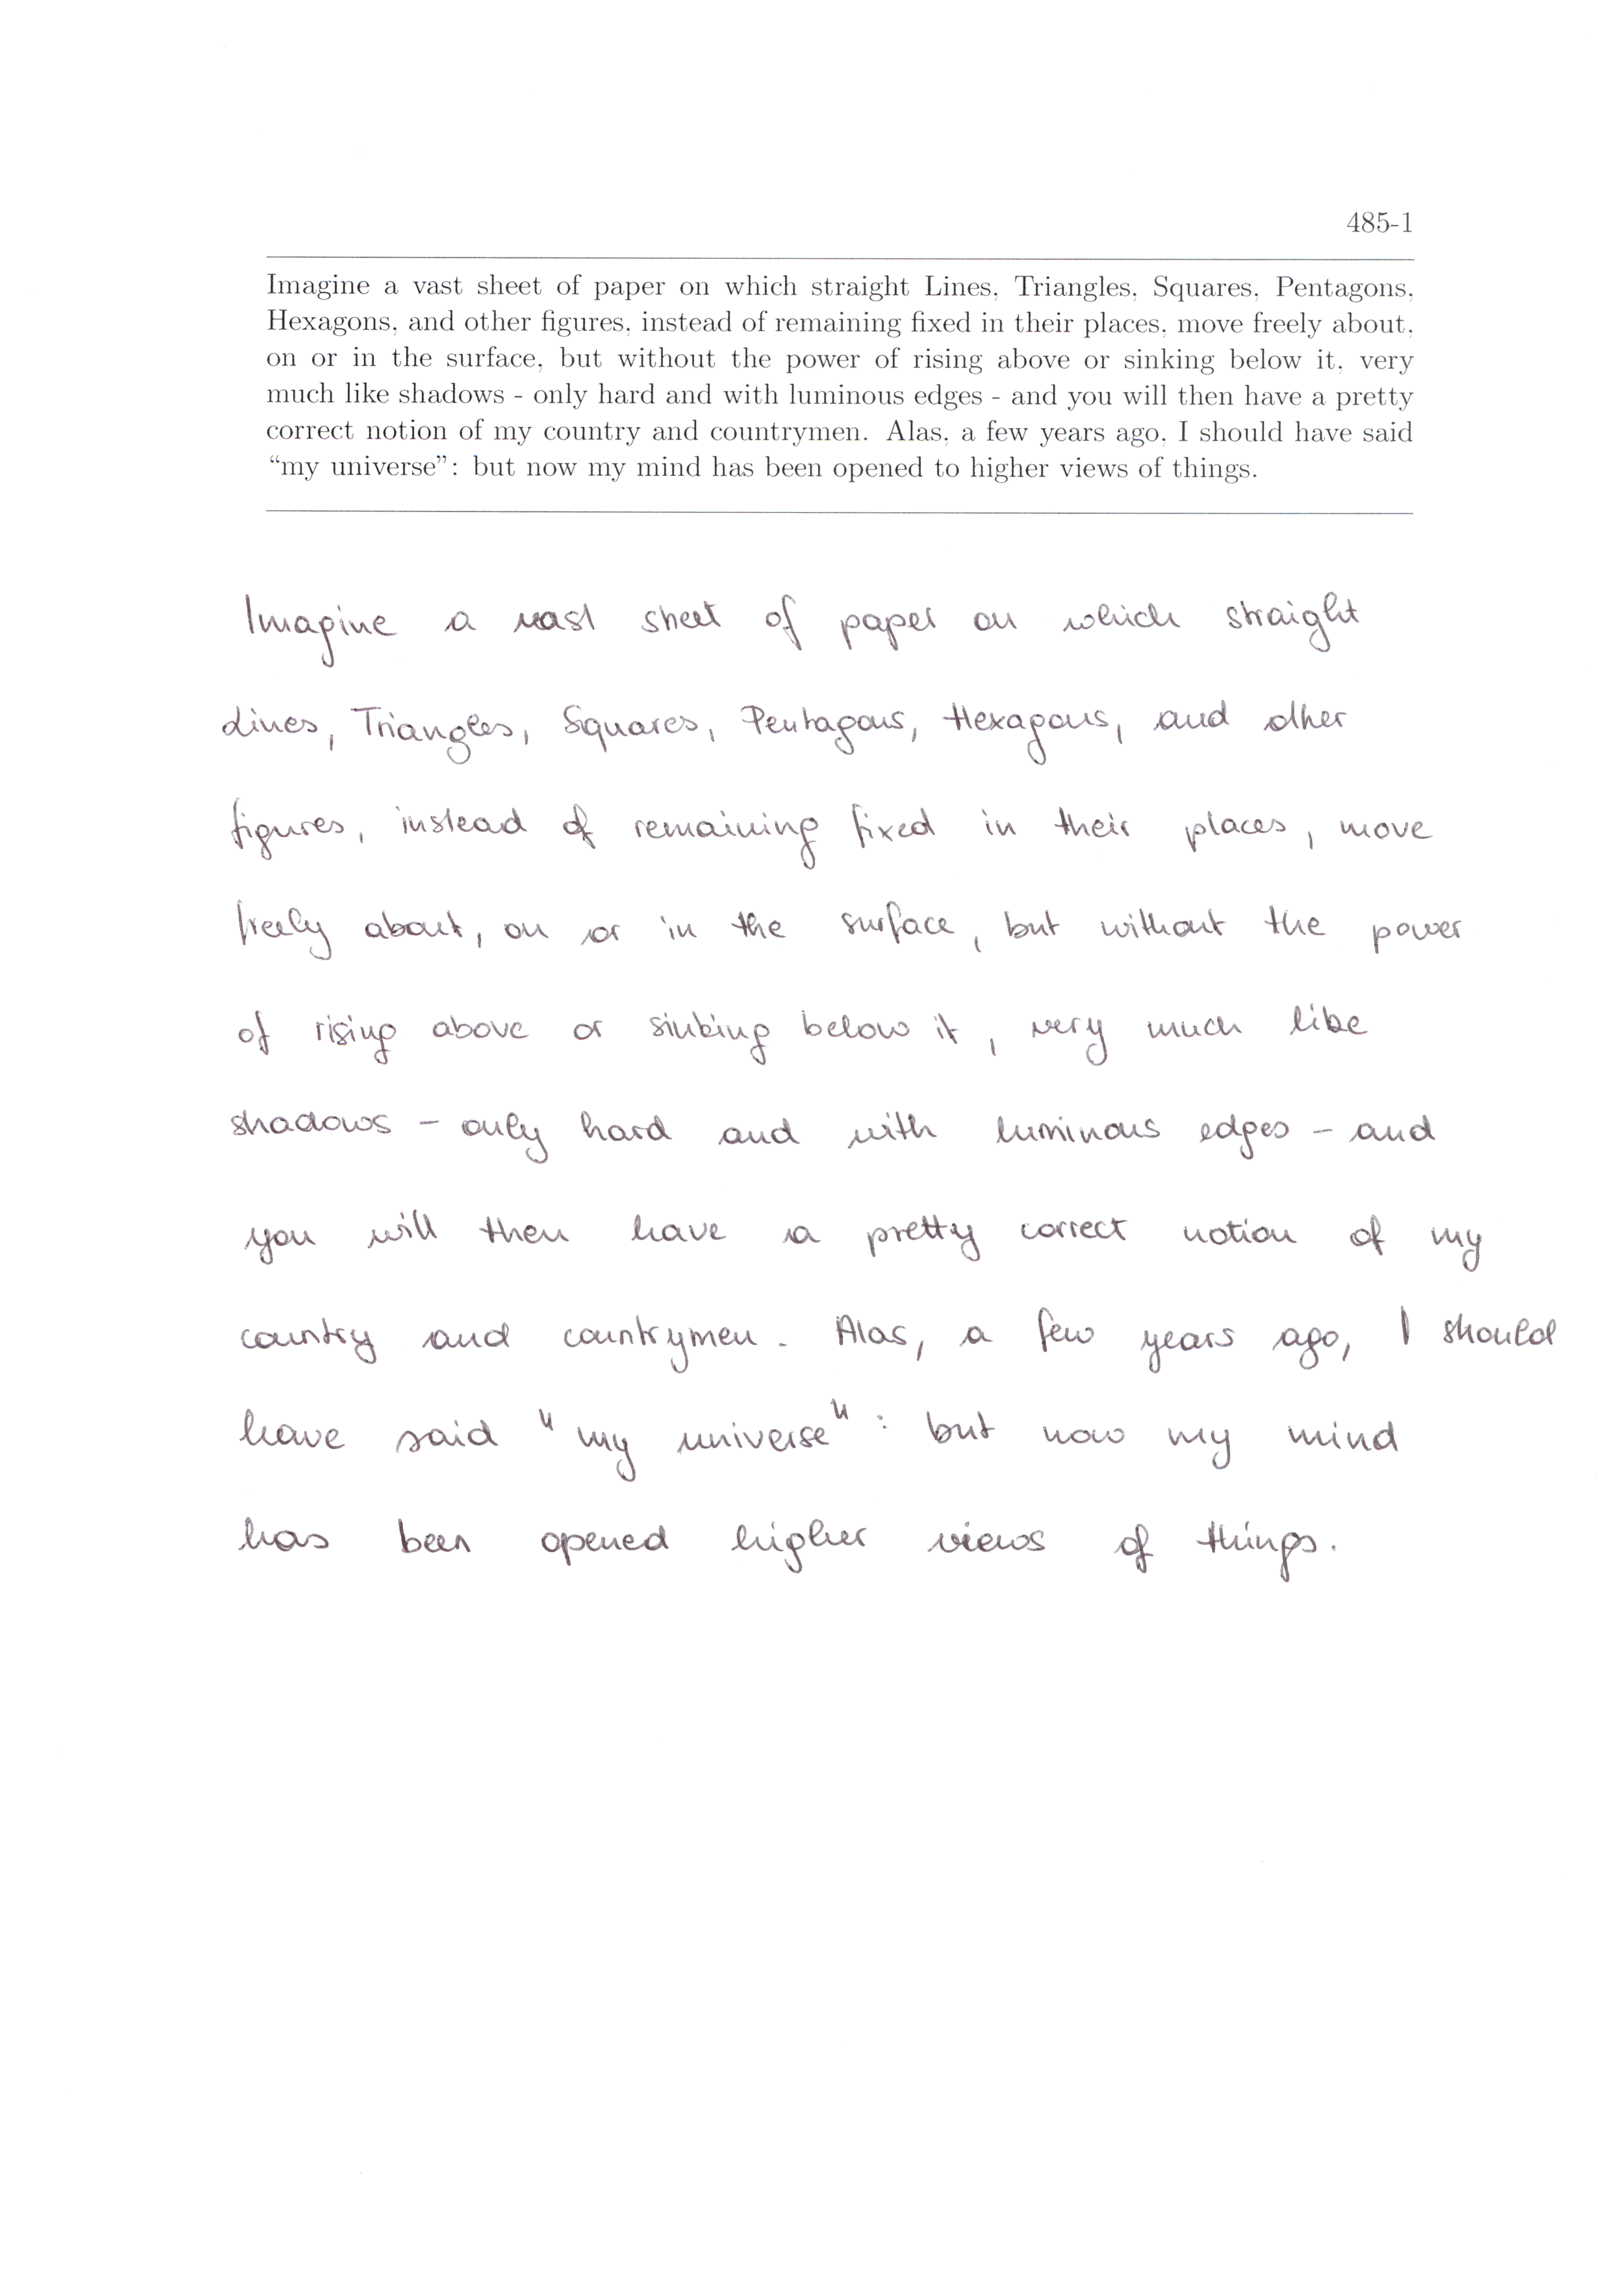 485-1
Imagine a vast sheet of paper on which straight Lines, Triangles, Squares, Pentagons,
Hexagons, and other figures, instead of remaining fixed in their places, move freely about,
on or in the surface, but without the power of rising above or sinking below it, very
much like shadows - only hard and with luminous edges - and you will then have a pretty
correct notion of my country and countrymen. Alas, a few years ago, I should have said
“my universe”: but now my mind has been opened to higher views of things.
Imagine a vast sheet of paper on which straight
Lines, Triangles, Squares, Pentagons, Hexagons, and other
figures, instead of remaining fixed in their places, move
freely about, on or in the surface, but without the power
of rising above or sinking below it, very much like
shadows - only hard and with luminous edges - and
you will then have a pretty correct notion of my
country and countrymen. Alas, a few years ago, I should
have said "my universe": but now my mind
has been opened higher views of things.